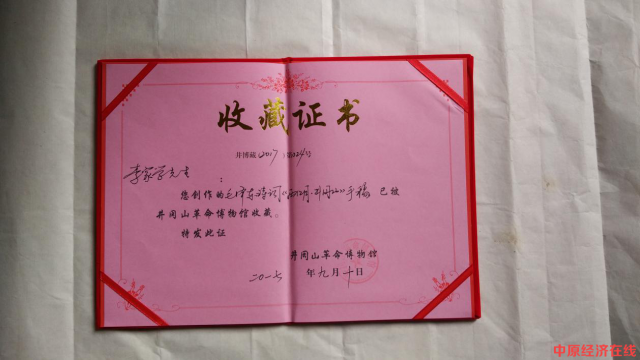 收藏证书
井博藏2017第024号
李家学先生：
您创作的毛泽东诗词《西江月·井冈山》手稿 已被
井冈山革命博物馆收藏。
特发此证
井冈山革命博物馆
二〇一七年九月十日
中原经济在线